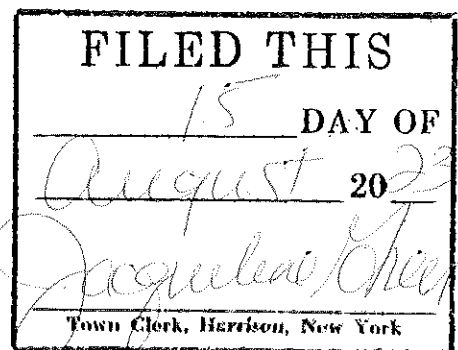 FILED THIS
15 DAY OF
August 2023
Jacqueline
Town Clerk, Harrison, New York